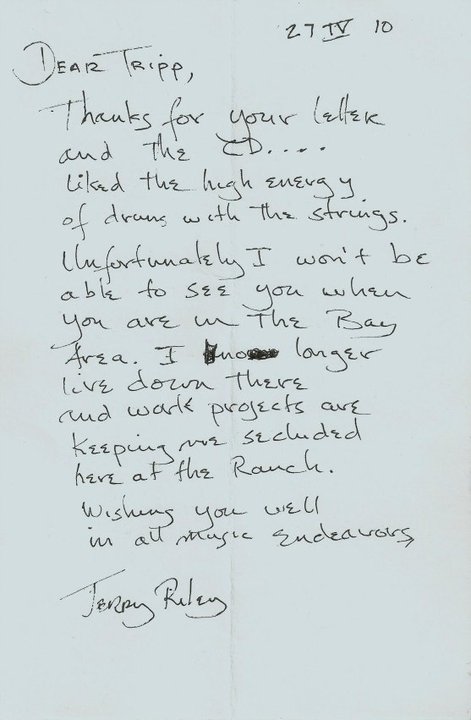 27 IV 10
Dear Tripp,
Thanks for your letter
and the CD....
liked the high energy
of drums with the strings.
Unfortunately I won't be
able to see you when
you are in The Bay
Area. I no longer
live down there
and work projects are
keeping me secluded
here at the Ranch.
Wishing you well
in all music endeavors
Terry Riley